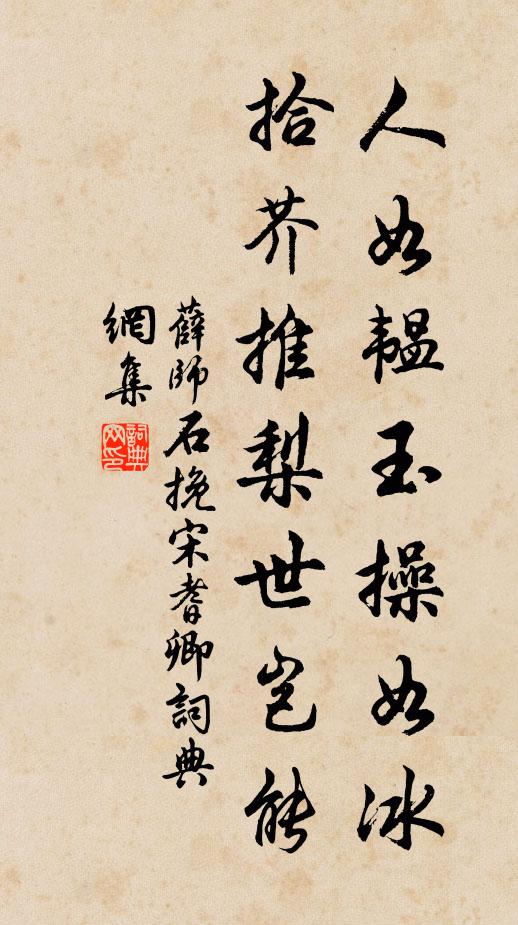 人如韞玉操如冰
拾芥推梨世豈能
薛師石挽宋耆卿詞典
網集
詞典
网印